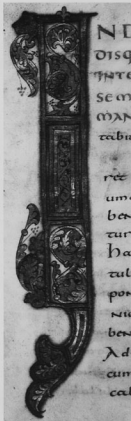 ND
DISQ
INTO
SEM
MAN
tabu
ree
ume
ben
tur
ha
tul
pon
nic
ben
Ad
cum
cal